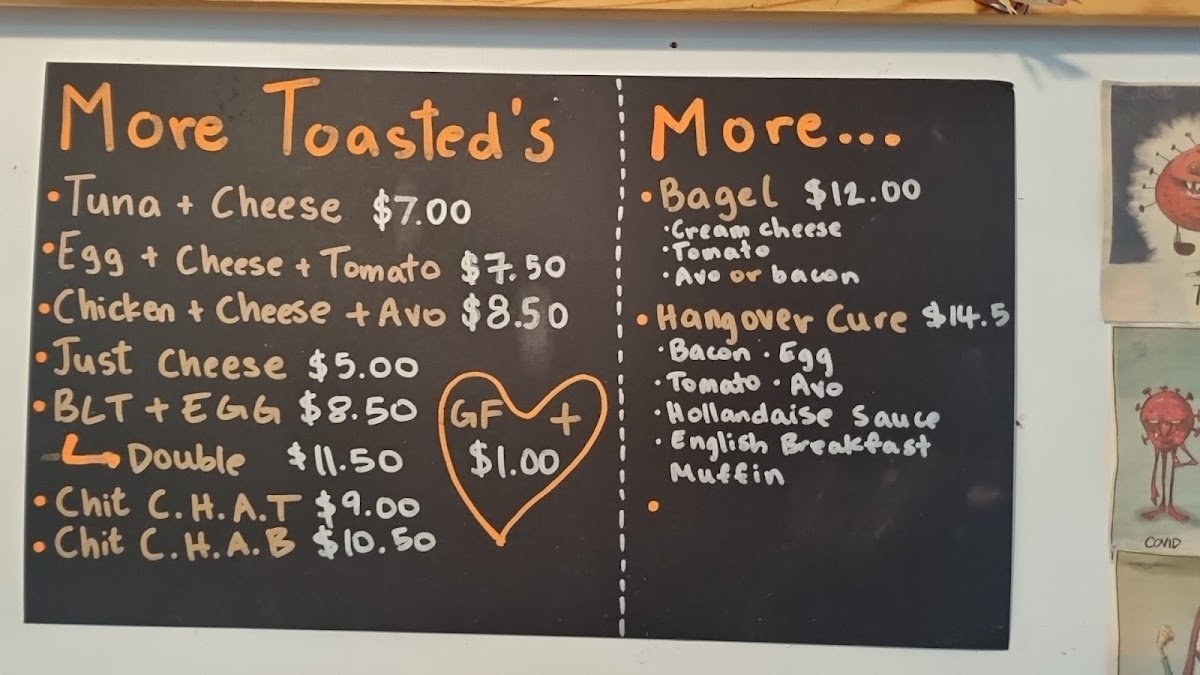 More Toasted's
• Tuna + Cheese $7.00
• Egg + Cheese + Tomato $7.50
• Chicken + Cheese + Avo $8.50
• Just Cheese $5.00
• BLT + EGG $8.50
Double $11.50
• Chit C.H.A.T $9.00
• Chit C.H.A.B $10.50
GF +
$1.00
More...
• Bagel $12.00
• Cream cheese
• Tomato
• Avo or bacon
• Hangover Cure $14.5
• Bacon • Egg
• Tomato • Avo
• Hollandaise Sauce
• English Breakfast
Muffin
•
COVID